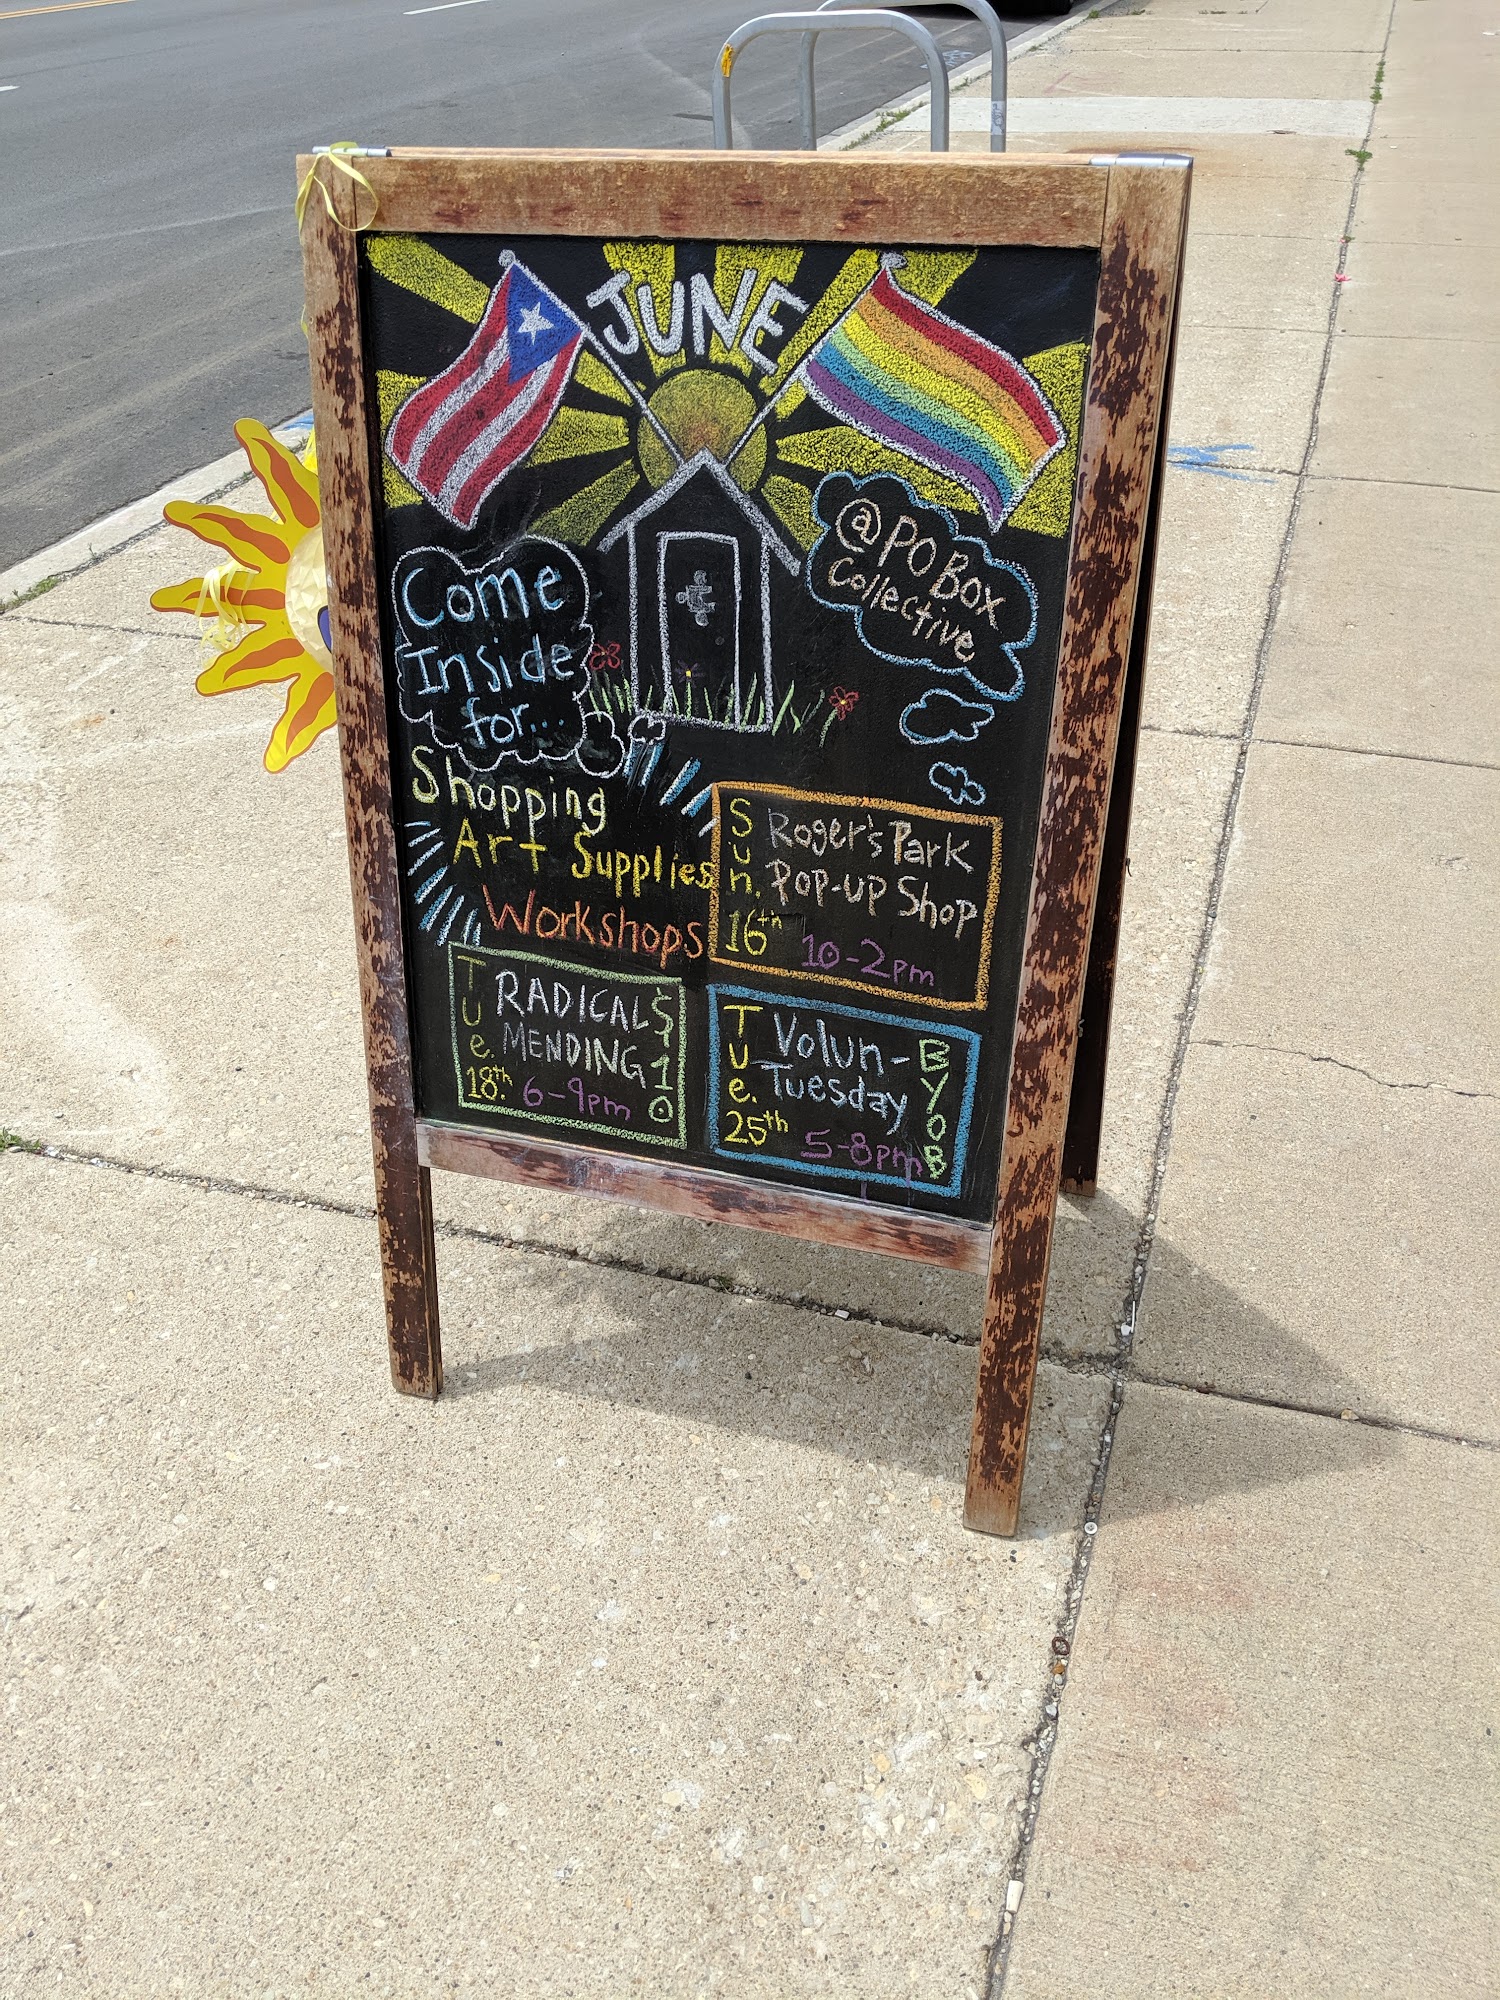 JUNE
@PO Box
Collective
Come
Inside
for...
Shopping
Art Supplies
Workshops
Sun.
16th
Roger's Park
Pop-up Shop
10-2pm
Tue.
18th.
RADICAL
MENDING
6-9pm
$10
Tue.
25th
Volun-
Tuesday
5-8pm
BYOB